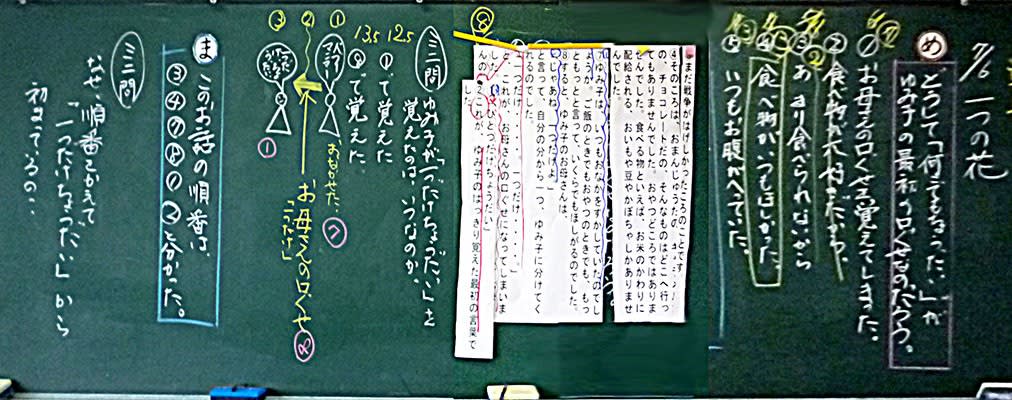 一つの花
め
どうして「一つだけちょうだい」が
ゆみ子の最初の口ぐせなのだろう。
① お母さんの口ぐせを覚えてしまった。
② 食べ物が大切だから。
③ あまり食べられないから
④ 食べ物がいつもほしかった
⑤ いつもお腹がへっていた。
まだ戦争がはげしかったころのことです。
④そのころは、おまんじゅうだの、キャラメルだ
の、チョコレートだの、そんなものはどこへ行っ
てもありませんでした。おやつどころではありま
せんでした。食べる物といえば、お米のかわりに
配給される、おいもや豆やかぼちゃしかありませ
んでした。
ゆみ子は、いつもおなかをすかしていたのでし
ょうか。ご飯のときでもおやつのときでも、もっ
ともっとと言って、いくらでもほしがるのでした。
⑧すると、ゆみ子のお母さんは、
「じゃあね、一つだけよ。」
と言って、自分の分から一つ、ゆみ子に分けてく
れるのでした。
「一つだけ・・・。一つだけ・・・。」
と、これが、お母さんの口ぐせになってしまいま
「ひとつだけちょうだい」
②これが、ゆみ子のはっきり覚えた最初の言葉で
した。
⑧
三問
ゆみ子が「一つだけちょうだい」を
覚えたのは、いつなのか
①で覚えた
⑦で覚えた
12人
13人
① ② ③
お母さんの口ぐせ
「一つだけ」
⑦
⑧
①
ま
このお話の順番は、
③④⑦⑧①②と分かった。
三問
なぜ、順番をかえて
「一つだけちょうだい」から
初まっているの・・